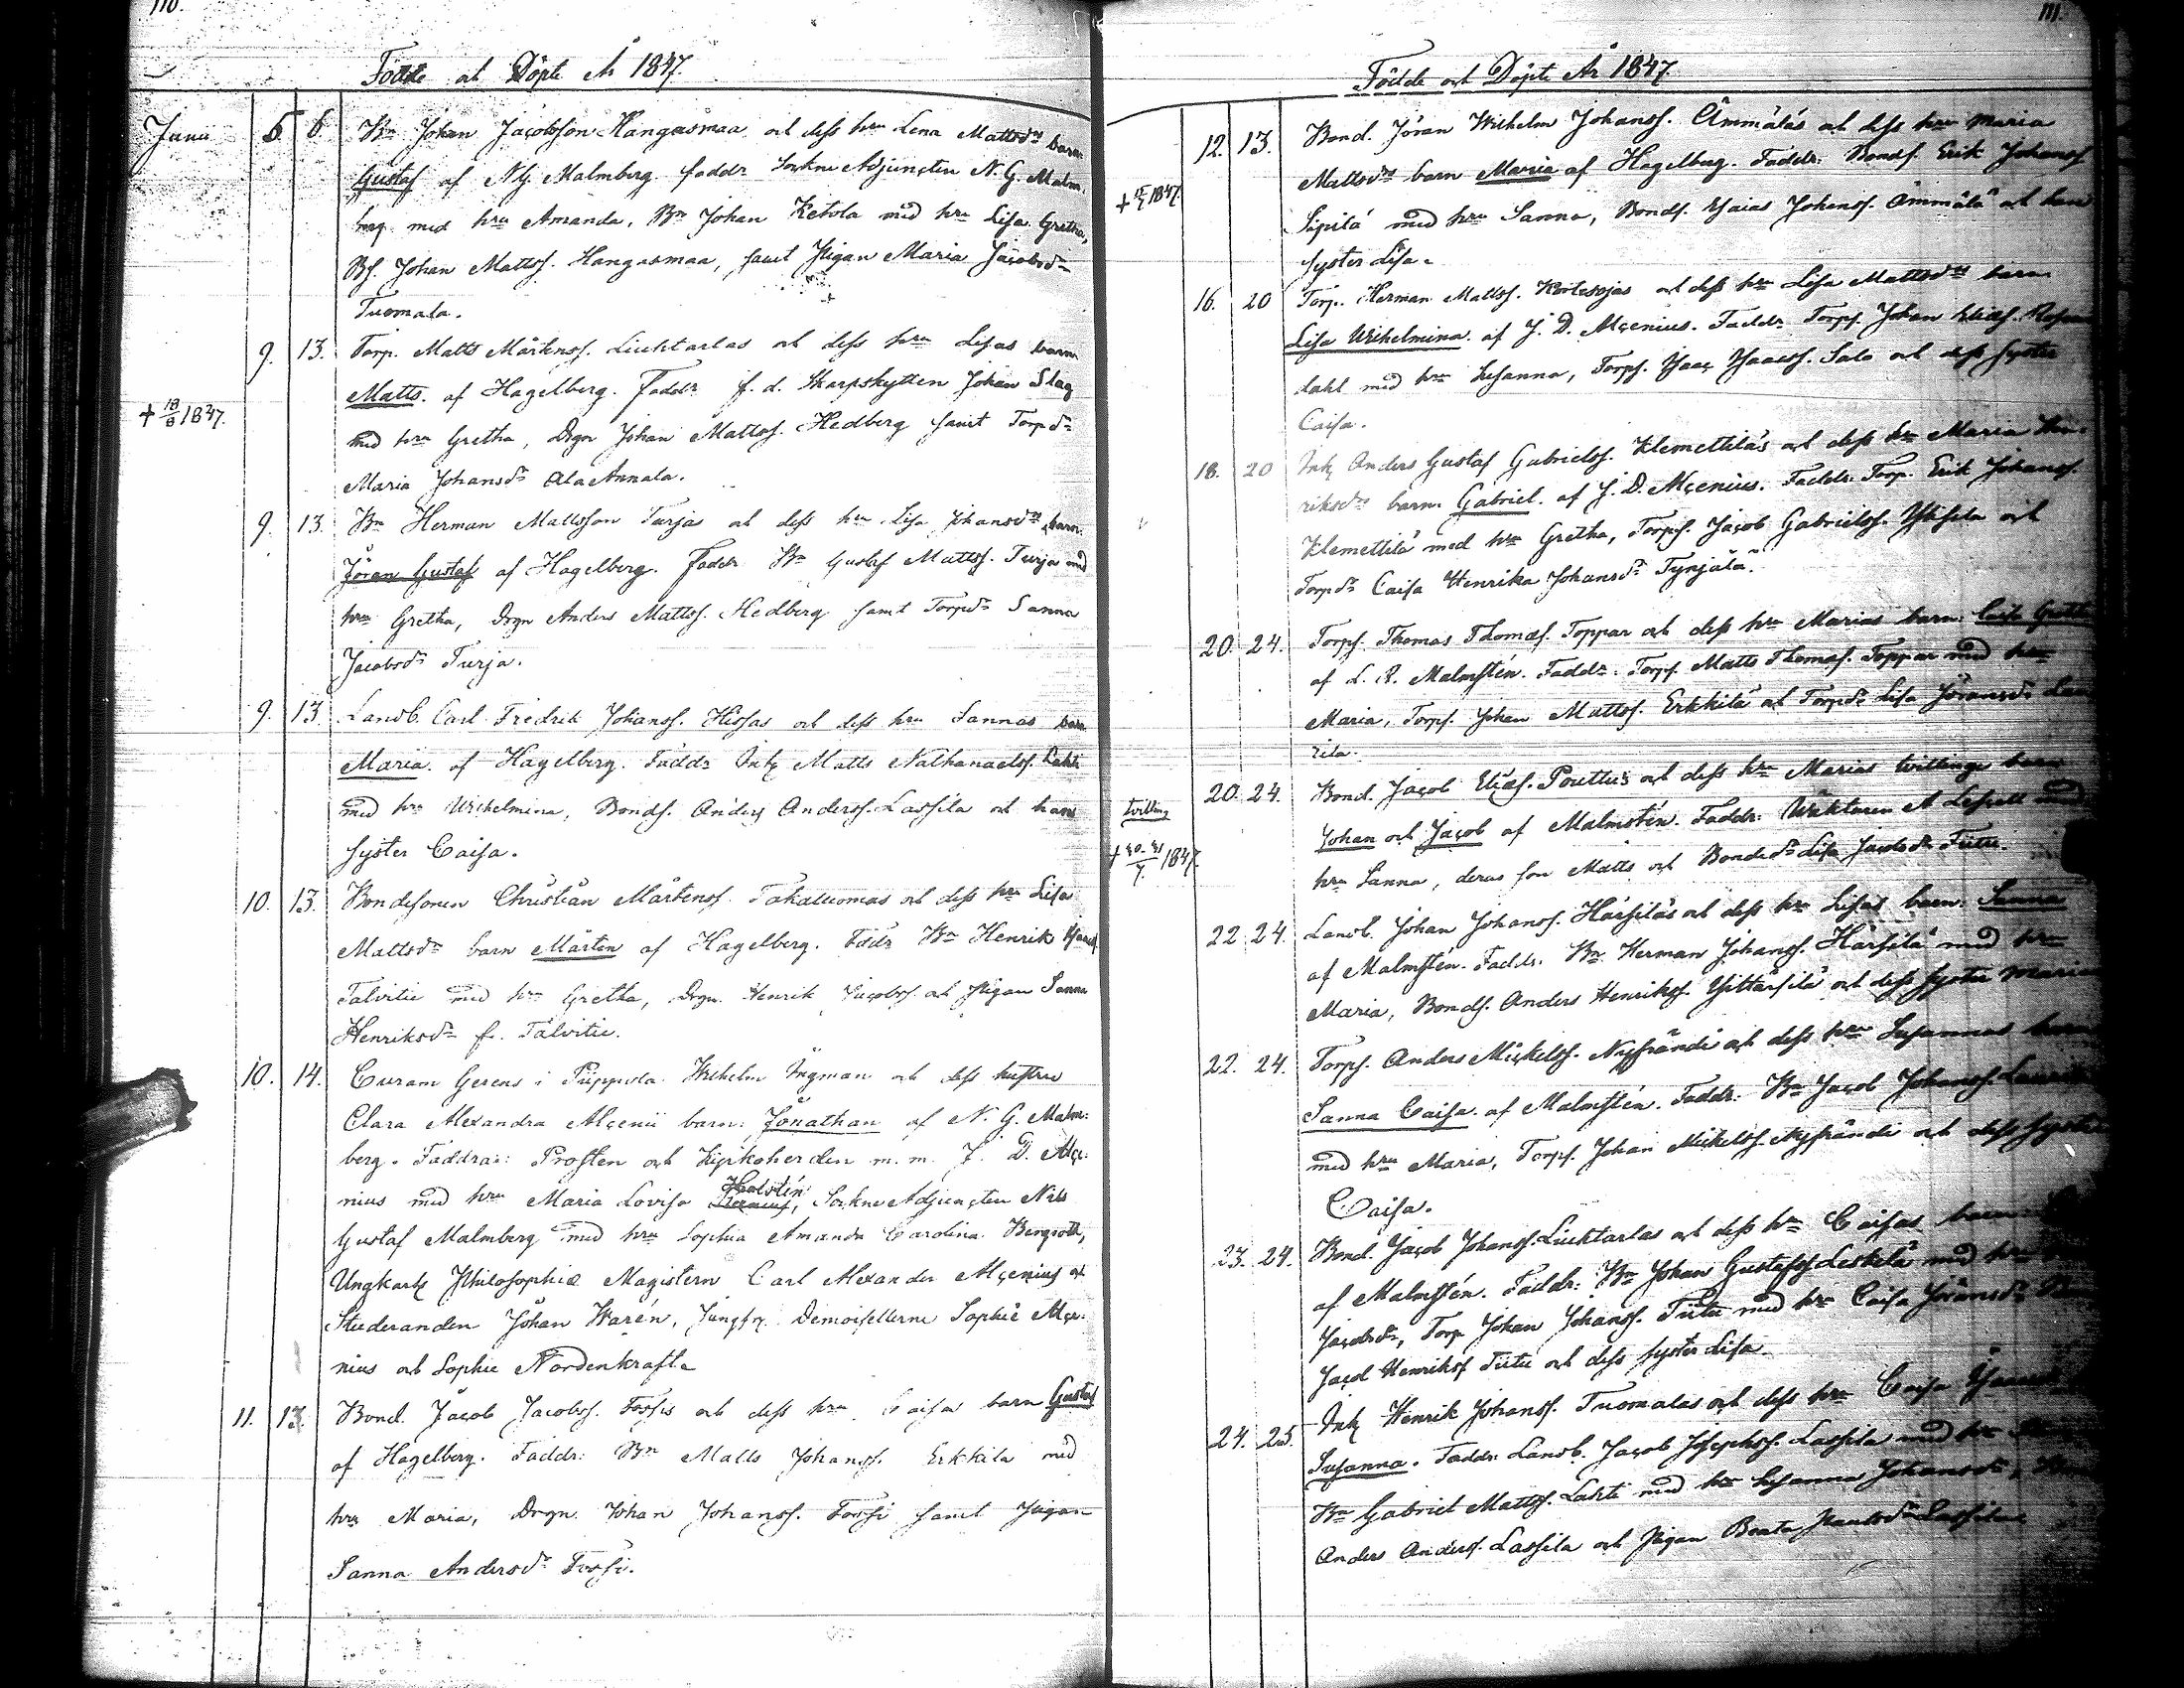 110.
Födde och Döpte År 1847.
Junii 5 6 Bn Johan Jacobsson Hangasmaa och dess hru Lena Mattsdrs barn:
Gustaf af N. G. Malmberg. faddr Sockne Adjuncten N. G. Malm-
berg med hru Amanda, Bn Johan Ketola med hru Lisa Gretha,
Bs. Johan Mattss. Hangasmaa, samt Pigan Maria Jacobsdr
Tuomala.
9. 13. Torp. Matts Mårtenss. Liuhtarlas och dess hru Lisas barn
Matts. af Hagelberg. Faddr f. d. Skarpskytten Johan Slag
+ 18/8 1847.
med hru Gretha, Drgn Johan Mattss. Hedberg samt Torpdr
Maria Johansdr Ala Annala.
9. 13. Bn Herman Mattsson Turjas och dess hru Lisa Johansdrs barn:
Jöran Gustaf af Hagelberg. Faddr Bn Gustaf Mattss. Turja med
hru Gretha, Drgn Anders Mattss. Hedberg samt Torpdr Sanna
Jacobsdr Turja.
9. 13. Landb. Carl Fredrik Johanss. Hissas och dess hru Sannas barn
Maria. af Hagelberg. Faddr Inh. Matts Nathanaelss. Lahti
med hru Wilhelmina, Bonds. Anders Anderss. Lassila och hans
syster Caisa.
10. 13. Bondesonen Christian Mårtenss. Takaluomas och dess hru Lisa
Mattsdr barn Mårten af Hagelberg. Faddr Bn Henrik
Talvitie med hru Gretha, Drgn Henrik Jacobss. och Pigan Sanna
Henriksdr fr. Talvitie.
10. 14. Curam Gerens i Piippola Wilhelm Ingman och dess hustru
Clara Alexandra Alcenii barn: Jonathan af N. G. Malm-
berg. Faddrar: Prosten och Kyrkoherden m. m. J. D. Alce-
nius med hru Maria Lovisa Holstén, Sockne Adjuncten Nils
Gustaf Malmberg med hru Sophia Amanda Carolina Bergroth,
Ungkarle Philosophiæ Magistern Carl Alexander Alcenius och
Studeranden Johan Warén, Jungfr. Demoisellerne Sophie Alce-
nius och Sophie Nordenkraft.
11. 13. Bond. Jacob Jacobss. Fossis och dess hru Caisa barn Gustaf
af Hagelberg. Faddr: Bn Matts Johanss. Erkkila med
hru Maria, Drgn Johan Johanss. Fossi samt Pigan
Sanna Andersdr Fossi.
111.
Födde och Döpte År 1847.
12. 13. Bond. Jöran Wilhelm Johanss. Ämmäläs och dess hru Maria
Mattsdrs barn Maria af Hagelberg. Faddr: Bonds. Erik Johanss
Sipilä med hru Sanna, Bonds. Esaias Johanss. Ämmälä och hans
syster Lisa.
16. 20 Torp. Herman Mattss. och dess hru Lisa Mattsdrs barn
Lisa Wilhelmina. af J. D. Alcenius. Faddr. Torps. Johan Eliass.
dahl med hru Susanna, Torps. Isaac Isaacss. Salo och dess syster
Caisa.
18. 20 Inh. Anders Gustaf Gabrielss. Klemettiläs och dess hru Maria Hen-
riksdrs barn. Gabriel. af J. D. Alcenius. Faddr. Torp. Erik Johanss.
Klemettilä med hru Gretha, Torps. Jacob Gabrielss. och
Torpdr Caisa Henrika Johansdr Tynjälä.
20. 24. Torps. Thomas Thomass. Toppar och dess hru Marias barn: Caisa Gretha
af L. R. Malmstén. Faddr: Torps. Matts Thomass. Toppar med hru
Maria, Torps. Johan Mattss. Erkkilä och Torpdr Lisa Jöransdr
20. 24. Bond. Jacob Eliass. Pouttus och dess hru Marias tvillinge barn
tvilling
Johan och Jacob af Malmstén. Faddr: Wäktaren A. med
hru Sanna, deras son Matts och Bondedr Lisa Jacobsdr Tiitu.
22 24. Landb. Johan Johanss. Härsiläs och dess hru Lisas barn: Sanna
af Malmstén. Faddr. Bn Herman Johanss. Härsilä med hru
Maria, Bonds. Anders Henrikss. och dess syster Maria
22. 24. Torps. Anders Mickelss. Nyfrändi och dess hru Susannas barn
Sanna Caisa. af Malmstén. Faddr: Bn Jacob Johanss.
med hru Maria, Torps. Johan Mickelss. Nyfrändi och dess syster
Caisa.
23. 24. Bond. Jacob Johanss. Liuhtarlas och dess hru Caisas barn
af Malmstén. Faddr: Bn Johan Gustafss. Leskelä med hru
Jacobsdr, Torp. Johan Johanss. Tiitu med hru Caisa Jöransdr
Jacob Henrikss Tiitu och dess syster Lisa.
24. 25. Inh. Henrik Johanss. Tuomalas och dess hru Caisa
Susanna. Faddr: Landb. Jacob Josephss. Lassila med hru
Bn Gabriel Mattss. Lahti med hru Susanna Johansdr,
Anders Anderss. Lassila och Pigan Beata Lassila